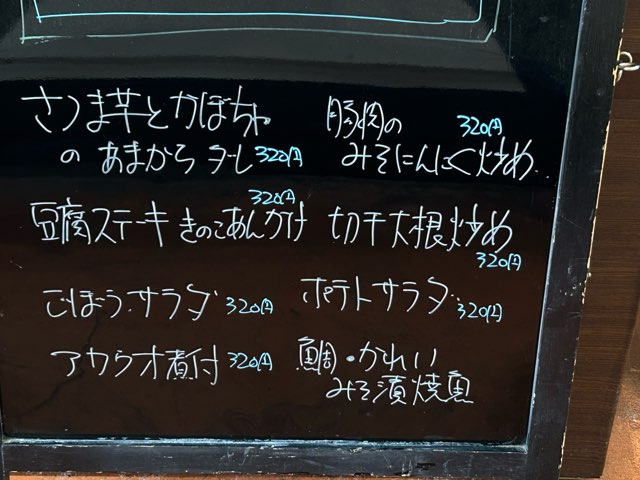 さつま芋とかぼちゃ
のあまから ダレ 320円
豚肉の 320円
みそにんにく炒め
320円
豆腐ステーキ きのこあんかけ
切干大根炒め
320円
ごぼうサラダ 320円
ポテトサラダ 320円
アカウオ煮付 320円
鯛・かれい
みそ漬焼魚